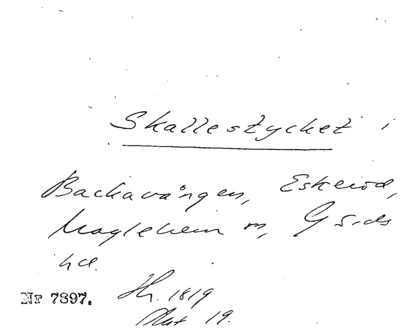 Skallestycket i
Backavången, Eskeröd,
Maglehem sn, Gärds
hd.
Nr 7897. Hr. 1819
Akt 19.